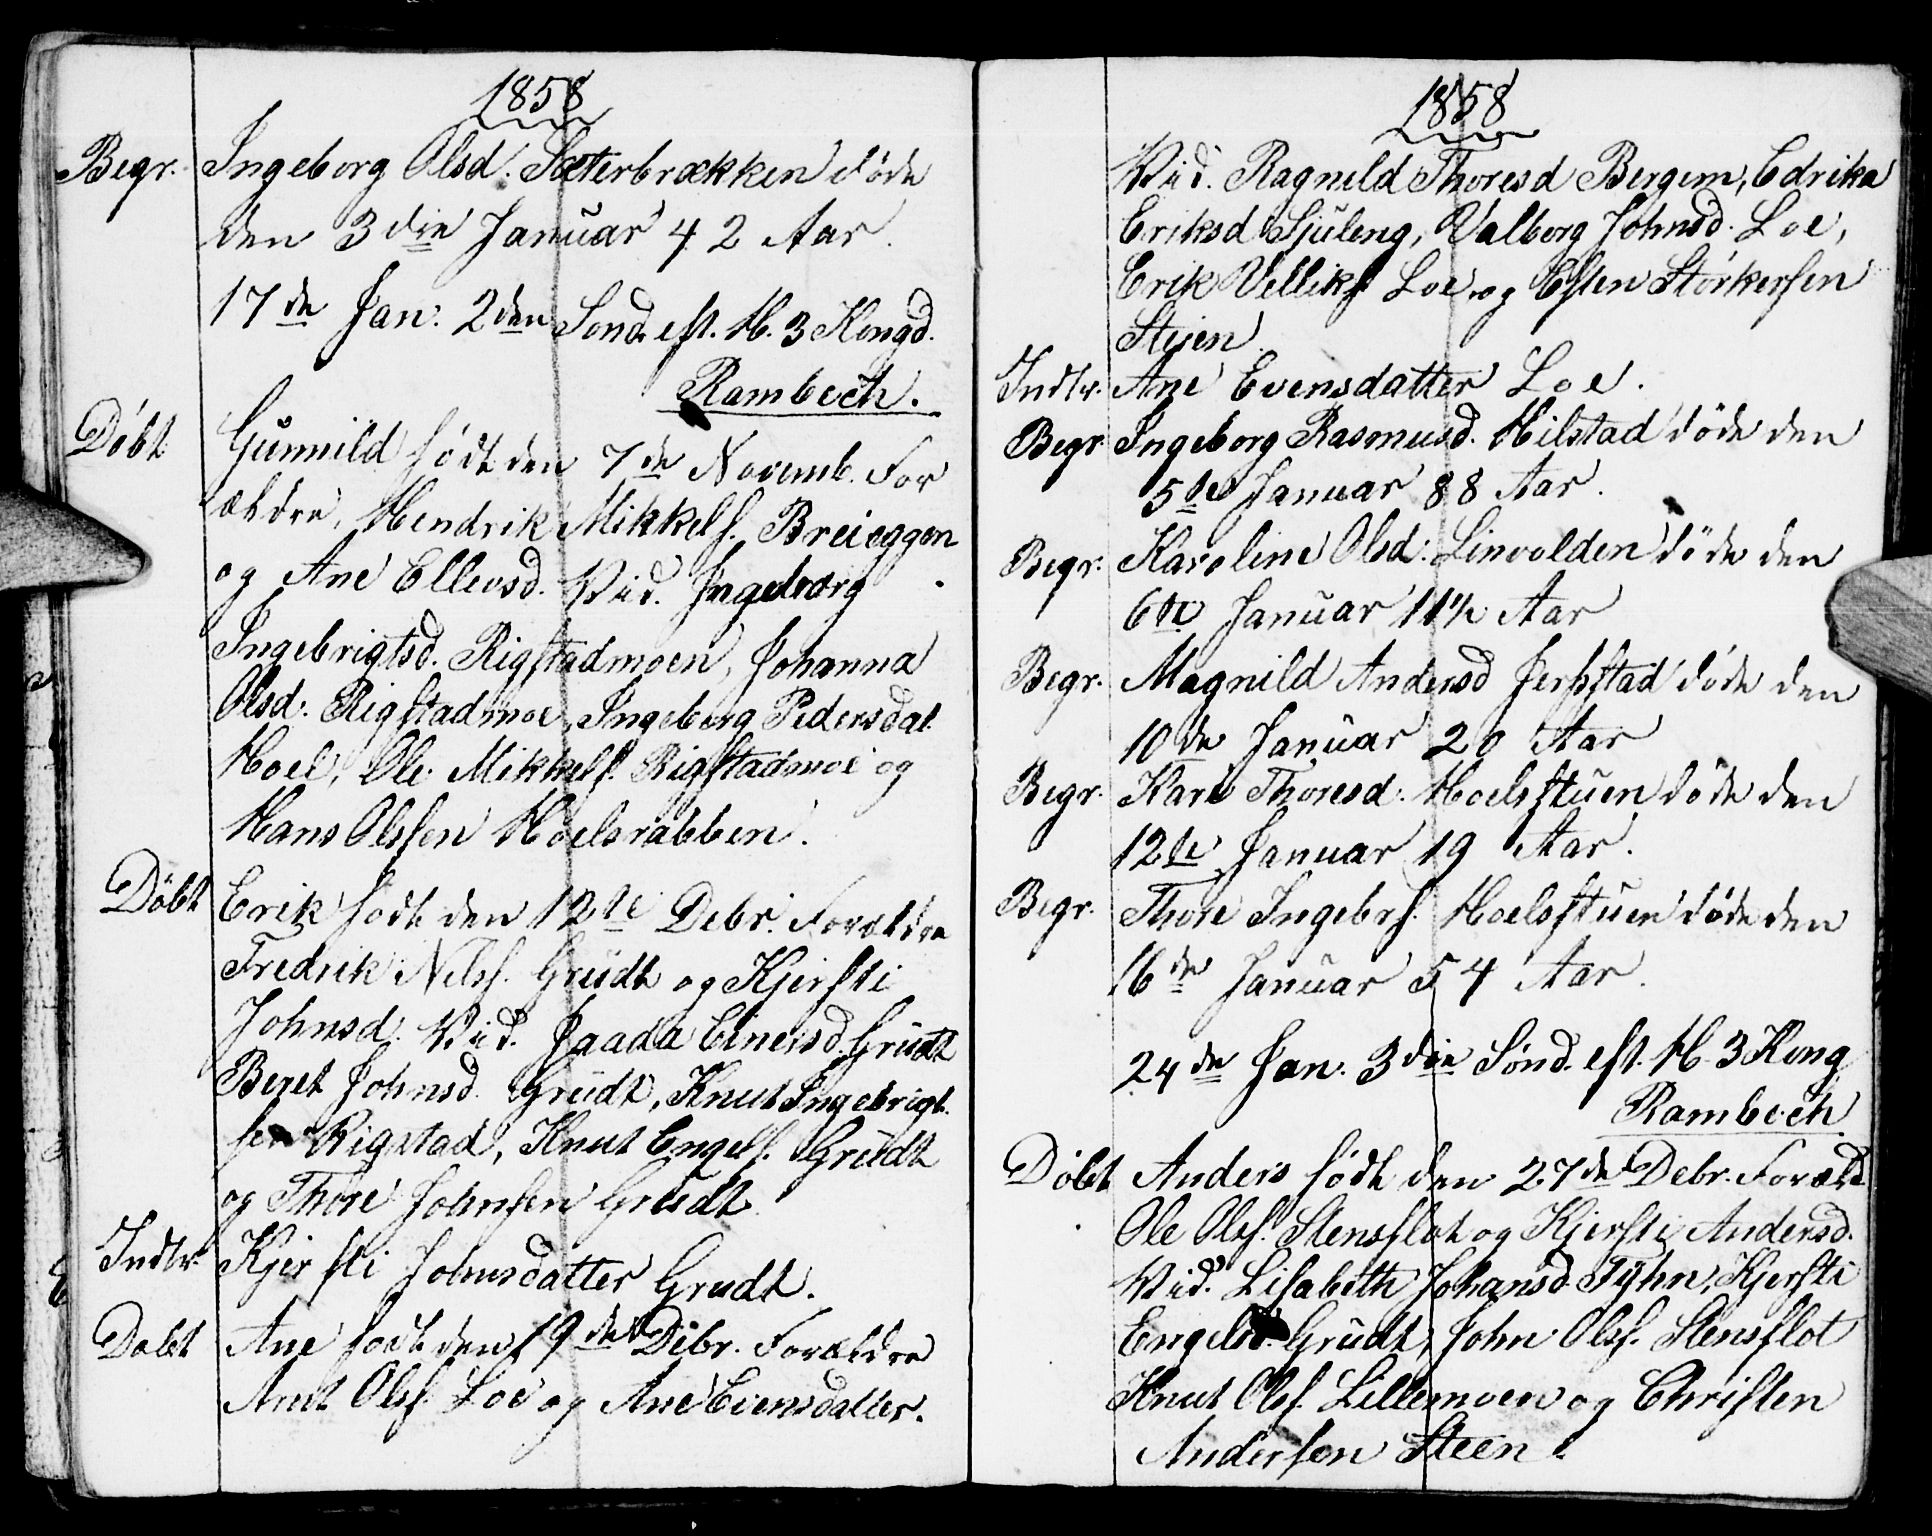 1858
Begr. Ingeborg Olsd. Sæterbrækken døde
den 3die Januar 42 Aar.
17de Jan. 2den Sond. eft. H. 3 Kongd.
Rambech.
Döbt Gunnild födt den 7de Novemb. For
ældre, Hendrik Mikkels. Breieggen
og Ane Ellevsd. Vid. Ingeborg
Ingebrigtsd. Rigstadmoen, Johanna
Olsd. Rigstadmoe, Ingeborg Pedersdat.
Hoel, Ole Mikkels. Rigstadmoe og
Hans Olssen Hoelsrabben.
Döbt Erik födt den 12te Debr. Forældre
Fredrik Nilss. Grudt og Kjersti
Johnsd. Vid. Jaada Einersd. Grudt
Beret Johnsd. Grudt, Knut Ingebrigt.
sen Rigstad, Knut Engels. Grudt
og Thore Johnsen Grudt
Indtr. Kjersti Johnsdatter Grudt.
Döbt Ane födt den 19de Debr. Forældre
Arnt Olss. Loe og Ane Evensdatter.
1858
Vid. Ragnild Thoresd Bergem, Edrika
Eriksd Sjuleng, Valborg Johnsd. Loe,
Erik Velliks. Loe og Esten Störkersen
Steien.
Indtr. Ane Evensdatter Loe.
Begr Ingeborg Rasmusd. Hilstad döde den
5te Januar 88 Aar.
Begr. Karoline Olsd. Linvolden döde den
6te Januar 11½ Aar
Begr. Magnild Andersd Jerpstad döde den
10de Januar 20 Aar
Begr. Kari Thoresd. Hoelsstuen döde den
12te Januar 19 Aar.
Begr. Thore Ingebrs. Hoelsstuen döde den
16de Januar 54 Aar.
24de Jan. 3die Sönd. eft. H 3 Kong
Rambech
Döbt Anders födt den 27de Debr. Foræld
Ole Olss. Stensflot og Kjersti Andersd.
Vid. Lisabeth Johansd. Fyhn, Kjersti
Engelsd. Grudt, John Olss. Stensflot
Knut Olss. Lillemoen og Christen
Andersen Steen.